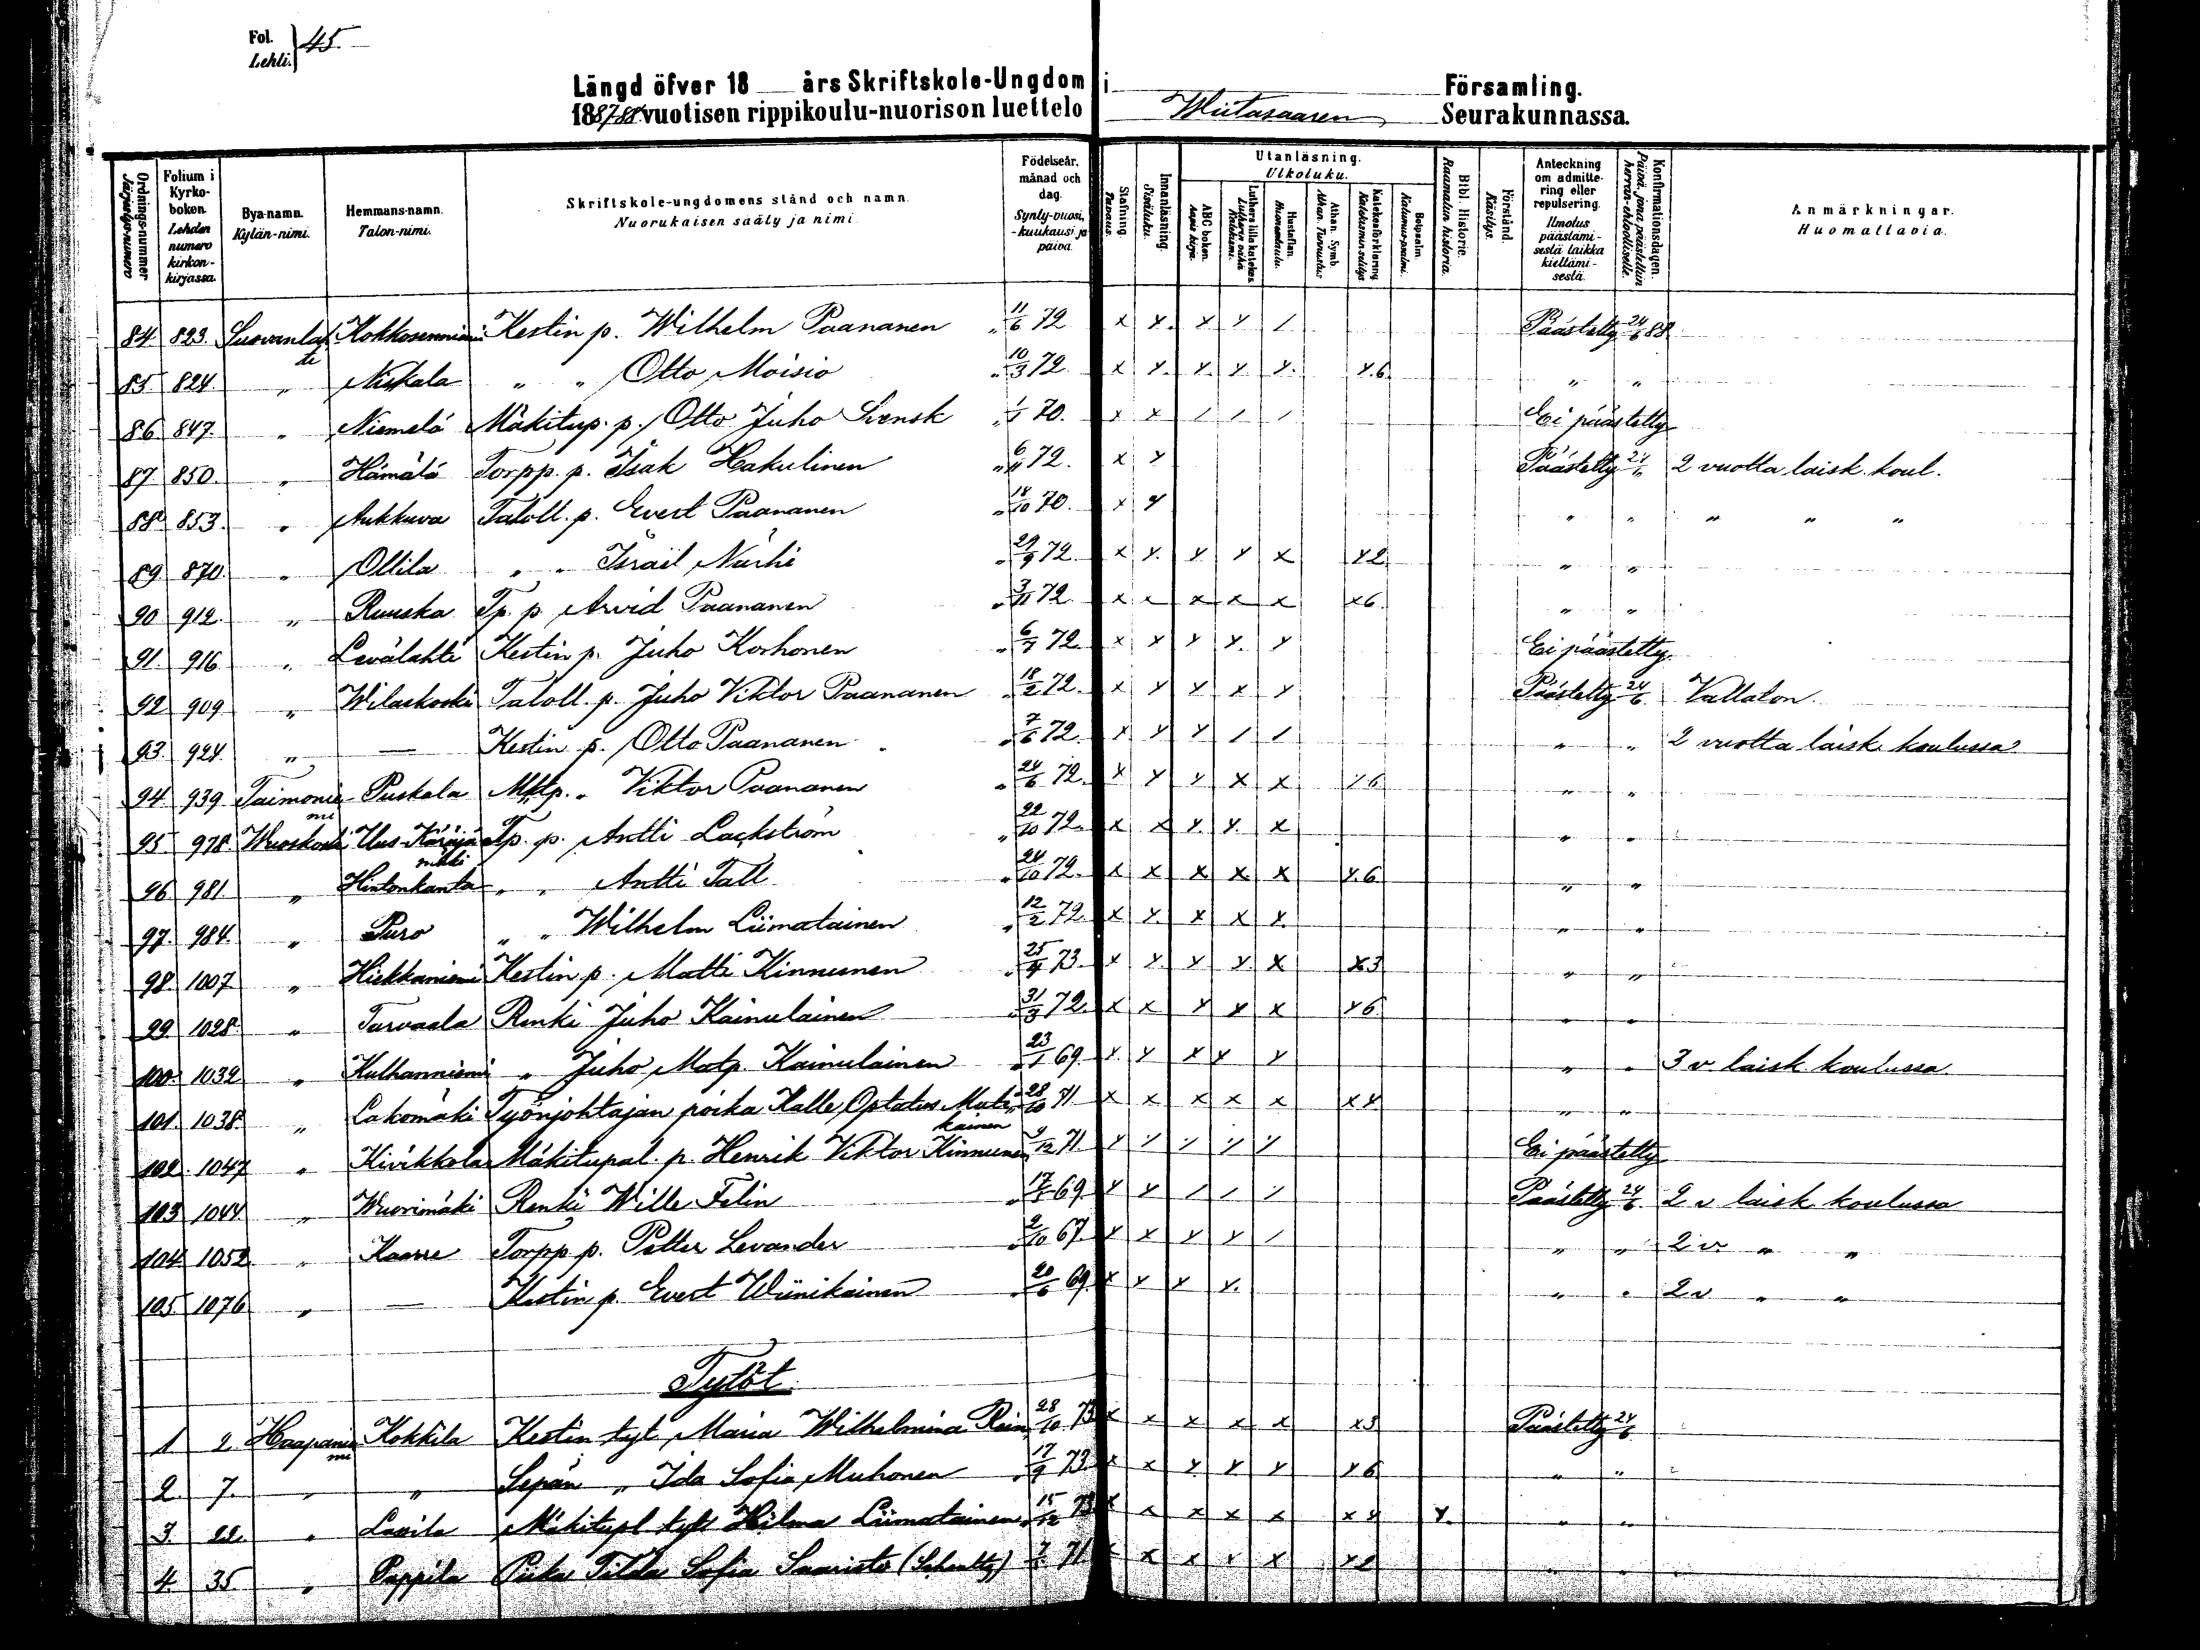 Fol. Lehti. } 45.
Längd öfver 18 års Skriftskole-Ungdom i Församling.
1887-88 vuotisen rippikoulu-nuorison luettelo Wiitasaaren Seurakunnassa.
Ordnings-nummer Järjestys-numero
Folium i Kyrko-boken. Lehden numero kirkon-kirjassa.
Bya-namn. Kylän-nimi.
Hemmans-namn. Talon-nimi.
Skriftskole-ungdomens stånd och namn. Nuorukaisen sääty ja nimi.
Födelseår, månad och dag. Synty-vuosi, -kuukausi ja päivä.
Stafning. Tavaus.
Innanläsning. Sisäluku.
Utanläsning. Ulkoluku.
ABC boken. Aapis kirja.
Luthers lilla katekes. Lutherin vähä Katekismi.
Hustaflan. Huoneentaulu.
Athan. Symb. Athan. Tunnustus
Katekesförklaring Katekismin selitys
Botpsalm. Katumus-psalmi.
Bibl. Historie. Raamatun historia.
Förstånd. Käsitys.
Anteckning om admittering eller repulsering. Ilmoitus päästämisestä taikka kieltämisestä.
Konfirmationsdagen. Päivä, jona päästettiin herran-ehtoolliselle.
Anmärkningar. Huomattavia.
84. 823. Suovanlahti Kokkosenniemi Kestin p. Wilhelm Paananen " 11/6 72 x y. x y / Päästetty 24/6 88.
85 824. " Niskala " " Otto Moisio " 10/3 72 x y. y. y. y. y.6. " "
86. 847. " Niemelä Mäkitup. p. Otto Juho Svensk " 1/1 70. x x / / / Ei päästetty
87. 850. " Hämälä Torpp. p. Isak Hakulinen " 6/11 72. x y Päästetty 24/6 2 vuotta laisk. koul.
88. 853. " Aukkuva Taloll. p. Evert Paananen " 18/10 70. x y " " " " "
89. 870. " Ollila " " Israil Närhi " 29/9 72. x y. y y x y2 " "
90 912. " Ruuska Tp. p. Arvid Paananen " 3/11 72 x x x x x x6. " "
91. 916. " Levälahti Kestin p. Juho Korhonen " 6/7 72. x x y y. y Ei päästetty.
92 909 " Wilaskoski Taloll. p. Juho Viktor Paananen " 18/2 72. x y y x y Päästetty 24/6. Vallaton.
93. 924. " — Kestin p. Otto Paananen " 7/6 72. x y y / / " " 2 vuotta laisk. koulussa
94. 939 Taimoniemi Puskala Mktp. " Viktor Paananen " 24/6 72. x y y x x y6 " "
95. 978. Wuoskoski Uus-Käräjämäki Tp. p. Antti Lackström " 22/10 72. x x y. y. x " "
96. 981. " Hintonkanta " " Antti Tall " 24/10 72. x x x x x y.6. " "
97. 984. " Puro " " Wilhelm Liimatainen " 12/2 72. x y. x x y. " "
98. 1007 " Hiekkaniemi Kestin p. Matti Kinnunen " 25/4 73. x y. y y. x x3 " "
99. 1028. " Tarvaala Renki Juho Kainulainen " 31/3 72. x x y y x y6 " "
100. 1032 " Kulhanniemi " Juho Matp. Kainulainen " 23/1 69. y. y x y y " " 3 v laisk. koulussa.
101. 1038. " Lakomäki Työnjohtajan poika Kalle Optatus Mutikainen 28/10 71 x x x x x x4. " "
102. 1047 " Kivikkola Mäkitupal. p. Henrik Viktor Kinnunen 9/12 71 y y y y y Ei päästetty
103 1044. " Wuorimäki Renki Wille Felin " 17/1 69. y y / / / Päästetty 24/6. 2 v laisk. koulussa
104. 1052. " Kaarre Torpp p. Petter Levander " 2/10 67. y x y y / " " 2 v. " "
105 1076 " — Kestin p. Evert Wiinikainen " 20/6 69. x y y y. " " 2 v " "
Tytöt.
1 2 Haapaniemi Kokkila Kestin tyt. Maria Wilhelmina Rein 28/10 73 x x x x x x3 Päästetty 24/6
2. 7. " " Sepän " Ida Sofia Muhonen " 17/9 73. x x y y y y6 " "
3. 22. " Lavila Mäkitupl tyt Hilma Liimatainen " 15/12 73 x x x x x x4 y. " "
4. 35 " Pappila Piika Tilda Sofia Saaristo x x x y x y2 " "